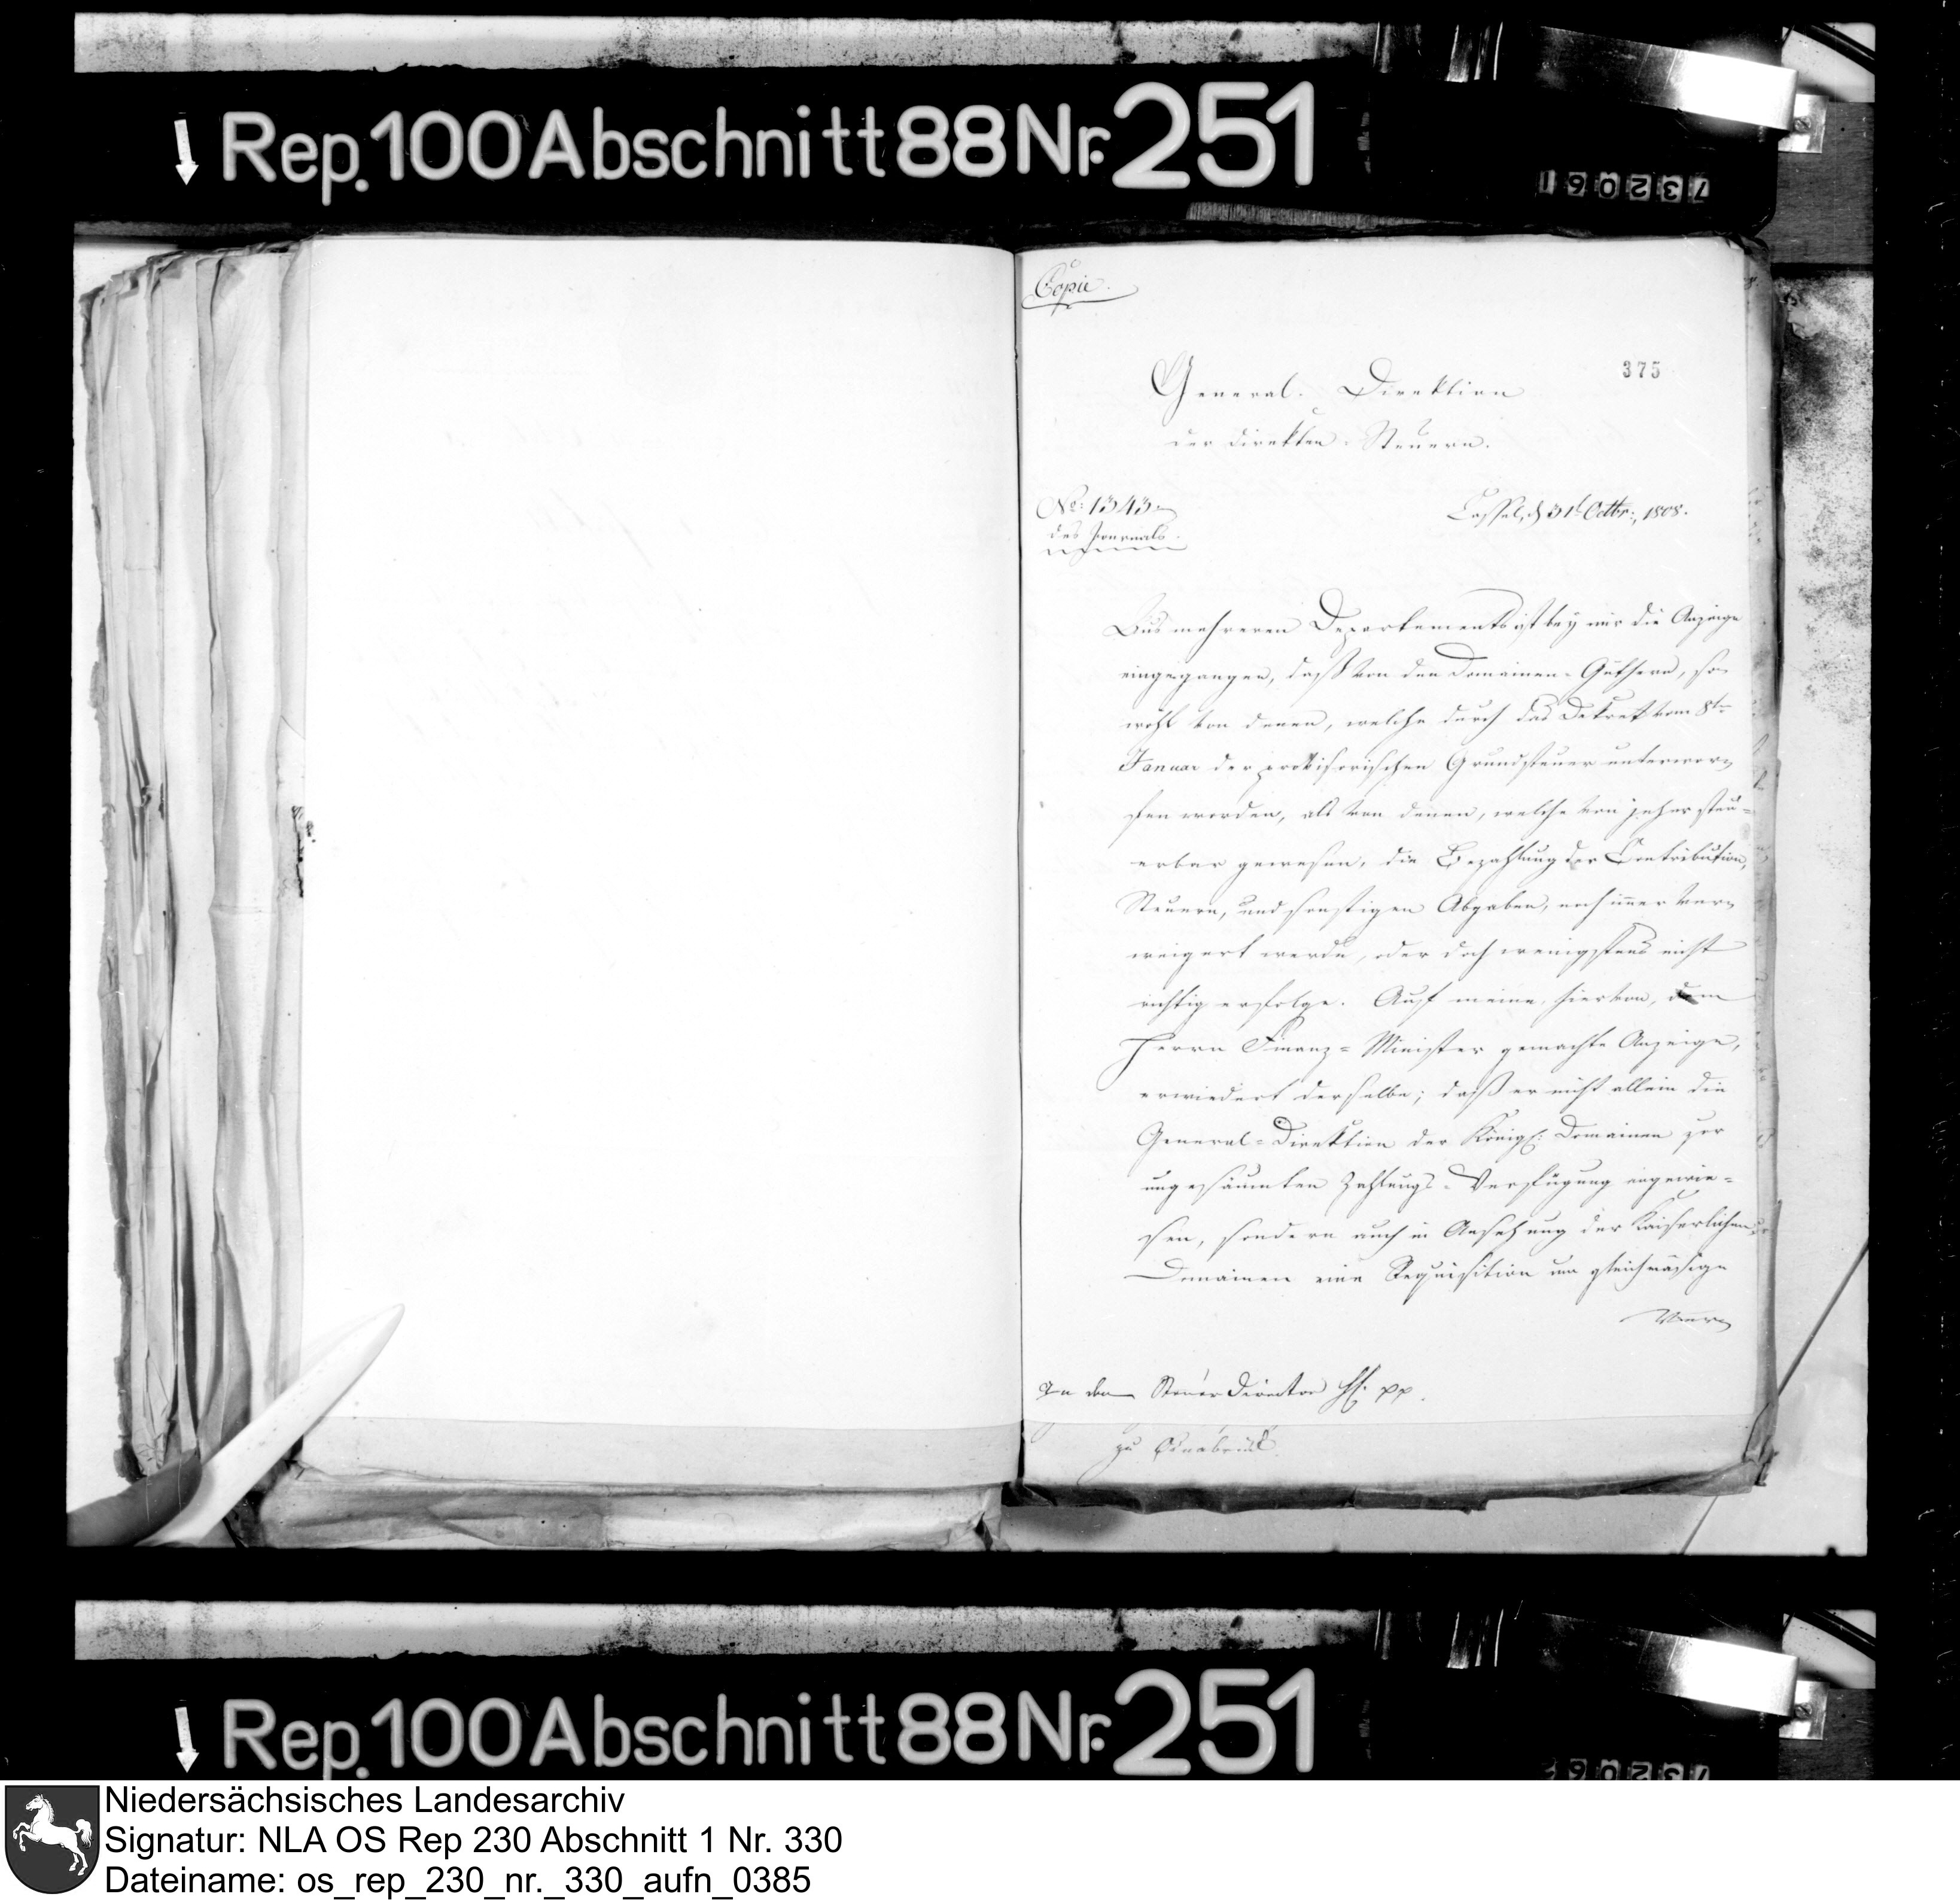 Rep. 100 Abschnitt 88 Nr. 251
732061
Copie.
375
General-Direktion
der direkten Steuern.
No: 1343
des Journals.
Cassel, d 31t Octbr:, 1808.
Aus mehreren Departements ist bey mir die Anzeige
eingegangen, daß von den Domainen-Güthern, so-
wohl von denen, welche durch das Dekret vom 8ten
Januar der provisorischen Grundsteuer unterwor-
fen worden, als von denen, welche von jeher steu-
erbar gewesen, die Bezahlung der Contribution,
Steuern, und sonstigen Abgaben, noch immer ver-
weigert werde, oder doch wenigstens nicht
richtig erfolge. Auf meine, hiervon, dem
Herrn Finanz-Minister gemachte Anzeige,
erwiedert derselbe; daß er nicht allein die
General-Direktion der Königl: Domainen zur
ungesäumten Zahlungs-Verfügung angewie-
sen, sondern auch in Ansehung der Kaiserlichen
Domainen eine Requisition um gleichmäsige
An den Steuer Director H. pp.
zu Osnabrück
Rep. 100 Abschnitt 88 Nr. 251
Niedersächsisches Landesarchiv
Signatur: NLA OS Rep 230 Abschnitt 1 Nr. 330
Dateiname: os_rep_230_nr._330_aufn_0385